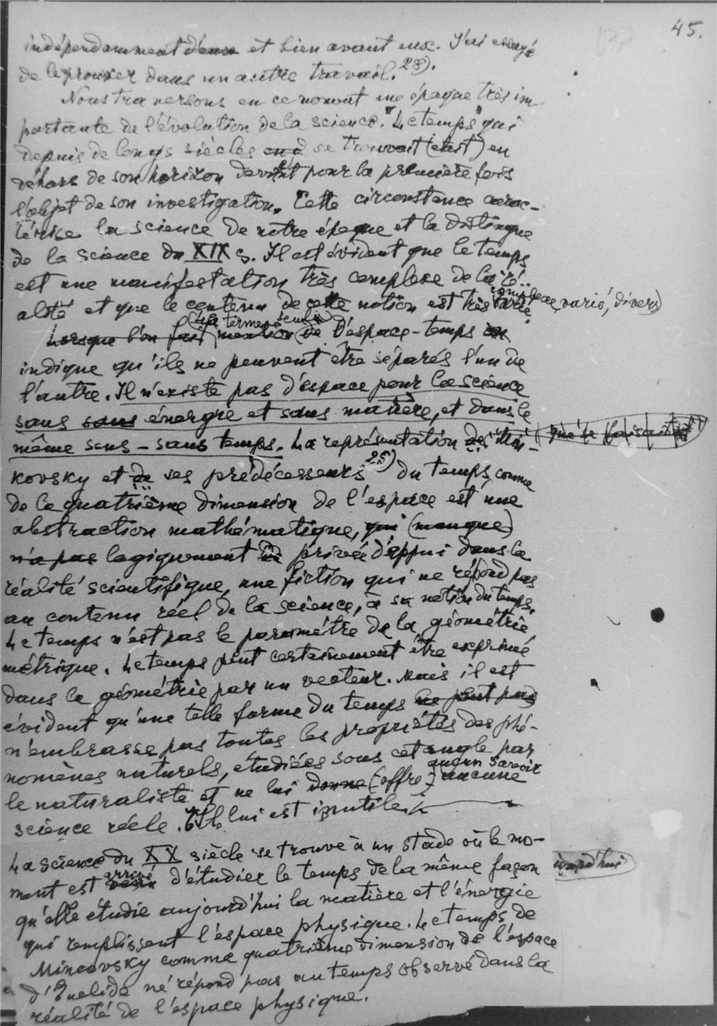 45.
indépendamment d'eux et bien avant eux. J'ai essayé
de le prouver dans un autre travail.
Nous traversons en ce moment une épaque très im-
portante de l'évolution de la science. "Le temps" qui
depuis de longs siècles se trouvait (était) en
déhors de son horizon devint pour la première fois
l'objet de son investigation. Cette circonstance carac-
térise la science de notre épaque et la distingue
de la science du XIX s. Il est évident que le temps
est une manifestation très complexe de la ré-
alité et que le contenu de cette notion est très varié
complexe, varié, divers)
(le terme seul)
Lorsque l'on fait mention de l'éspace-temps on
indique qu'ils ne peuvent être séparés l'un de
l'autre. Il n'existe pas d'espace pour la science
sans sans énergie et sans matière, et dans le
même sens – sans temps. La représentation de Min-
kovsky et de ses prédécesseurs 25) du temps, comme
de la quatrième dimension de l'espace est une
abstraction mathématique, qui (manque)
n'a pas logiquement privée d'appui dans la
réalité scientifique, une fiction qui ne répond pas
au contenu réel de la science, à sa notion du temps.
Le temps n'est pas le paramètre de la géométrie
métrique. Le temps peut certainement être exprimé
dans la géométrie par un vecteur. Mais il est
évident qu'une telle forme du temps ne peut pas
n'embrasse pas toutes les propriétés des phé-
nomènes naturels, étudiées sous cet angle par
le naturaliste et ne lui donne (offre) aucune
aucun savoir
science réele. Il lui est inutile.
La science du XX siècle se trouve à un stade où le mo-
ment est arrivé d'étudier le temps de la même façon
aujourd'hui
qu'elle étudie aujourd'hui la matière et l'énergie
qui remplissent l'espace physique. Le temps de
Mincovsky comme quatrième dimension de l'espace
d'Euclide ne répond pas au temps observé dans la
réalité de l'espace physique.